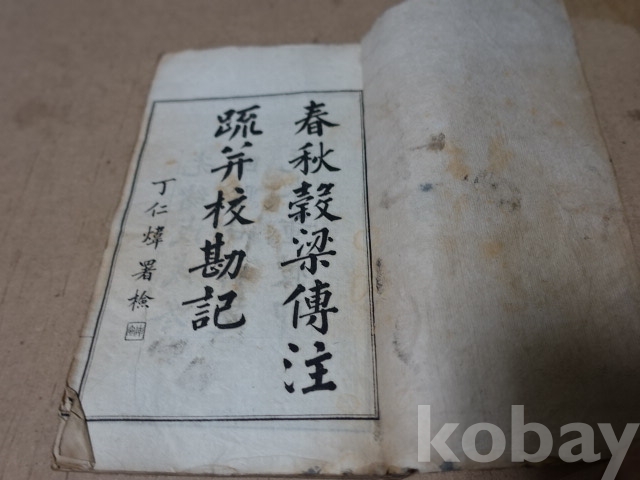 春秋穀梁傳注
疏并校勘記
丁仁煒署檢
kobay